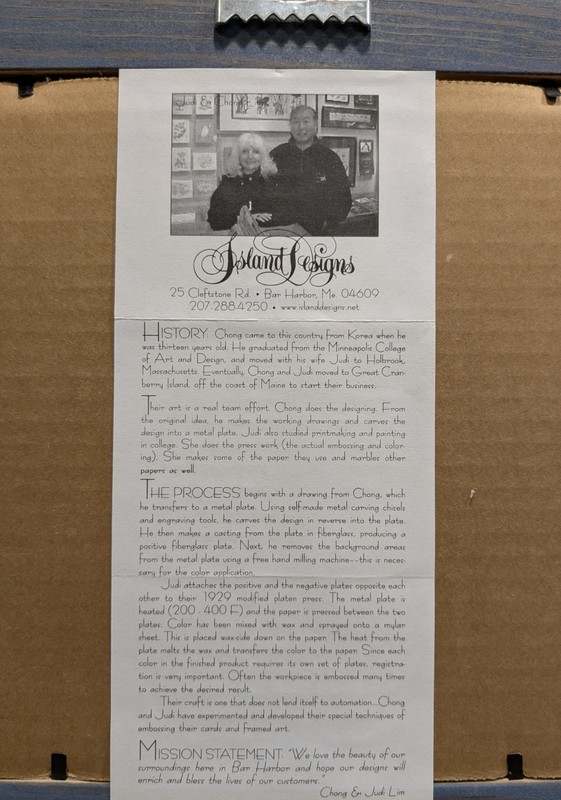 Judi & Chong
Island Designs
25 Cleftstone Rd. • Bar Harbor, Me. 04609
207-288-4250 • www.islanddesigns.net
HISTORY: Chong came to this country from Korea when he
was thirteen years old. He graduated from the Minneapolis College
of Art and Design, and moved with his wife Judi to Holbrook,
Massachusetts. Eventually Chong and Judi moved to Great Cran-
berry Island, off the coast of Maine to start their business.
Their art is a real team effort. Chong does the designing. From
the original idea, he makes the working drawings and carves the
design into a metal plate. Judi also studied printmaking and painting
in college. She does the press work (the actual embossing and color-
ing). She makes some of the paper they use and marbles other
papers as well.
THE PROCESS begins with a drawing from Chong, which
he transfers to a metal plate. Using self-made metal carving chisels
and engraving tools, he carves the design in reverse into the plate.
He then makes a casting from the plate in fiberglass, producing a
positive fiberglass plate. Next, he removes the background areas
from the metal plate using a free hand milling machine--this is neces-
sary for the color application.
Judi attaches the positive and the negative plates opposite each
other to their 1929 modified platen press. The metal plate is
heated (200 - 400 F) and the paper is pressed between the two
plates. Color has been mixed with wax and sprayed onto a mylar
sheet. This is placed wax-side down on the paper. The heat from the
plate melts the wax and transfers the color to the paper. Since each
color in the finished product requires its own set of plates, registra-
tion is very important. Often the workpiece is embossed many times
to achieve the desired result.
Their craft is one that does not lend itself to automation...Chong
and Judi have experimented and developed their special techniques of
embossing their cards and framed art.
MISSION STATEMENT: "We love the beauty of our
surroundings here in Bar Harbor and hope our designs will
enrich and bless the lives of our customers."
Chong & Judi Lim